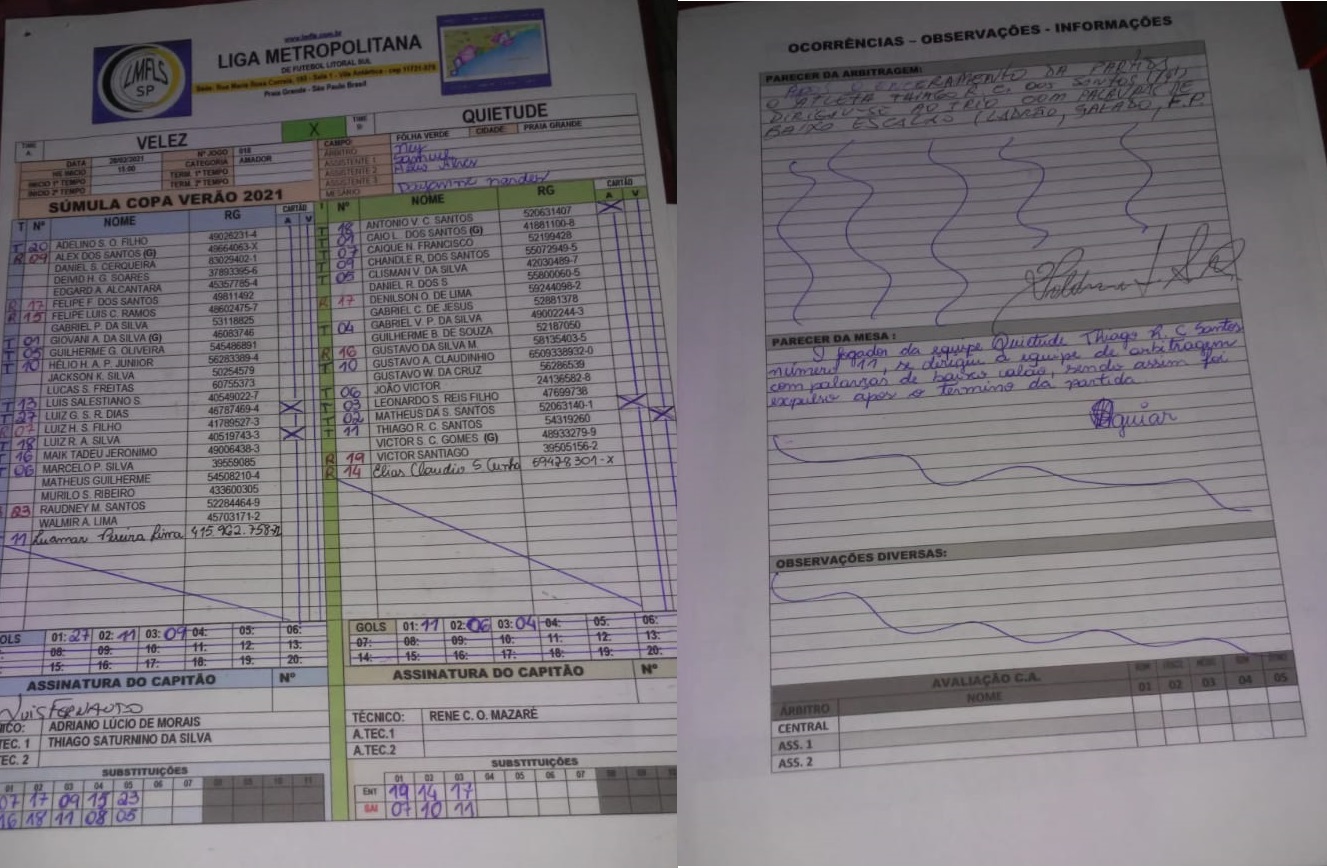 www.lmfls.com.br
LIGA METROPOLITANA
DE FUTEBOL LITORAL SUL
Sede: Rua Maria Rosa Correia, 193 - Sala 1 - Vila Antártica - cep 11721-275
Praia Grande - São Paulo Brasil
LMFLS
SP
TIME A: VELEZ X TIME B: QUIETUDE
DATA 28/02/2021 Nº JOGO 018
HS INICIO 15:00 CATEGORIA AMADOR
INICIO 1º TEMPO TERM. 1º TEMPO
INICIO 2º TEMPO TERM. 2º TEMPO
CAMPO: FOLHA VERDE CIDADE: PRAIA GRANDE
ARBITRO Ney
ASSISTENTE 1 Samuel
ASSISTENTE 2
ASSISTENTE 3
MESÁRIO
SÚMULA COPA VERÃO 2021
T Nº NOME RG CARTÃO A V
T 20 ADELINO S. O. FILHO 49026231-4
R 09 ALEX DOS SANTOS (G) 49664063-X
DANIEL S. CERQUEIRA 83029402-1
DEIVID H. G. SOARES 37893395-6
EDGARD A. ALCANTARA 45357785-4
R 17 FELIPE F. DOS SANTOS 49811492
R 15 FELIPE LUIS C. RAMOS 48602475-7
GABRIEL P. DA SILVA 53118825
T 01 GIOVANI A. DA SILVA (G) 46083746
T 05 GUILHERME G. OLIVEIRA 545486891
T 10 HÉLIO H. A. P. JUNIOR 56283389-4
JACKSON K. SILVA 50254579
LUCAS S. FREITAS 60755373
T 13 LUIS SALESTIANO S. 40549022-7
T 27 LUIZ G. S. R. DIAS 46787469-4 X
R 07 LUIZ H. S. FILHO 41789527-3
T 18 LUIZ R. A. SILVA 40519743-3 X
T 16 MAIK TADEU JERONIMO 49006438-3
T 06 MARCELO P. SILVA 39559085
MATHEUS GUILHERME 54508210-4
MURILO S. RIBEIRO 433600305
23 RAUDNEY M. SANTOS 52284464-9
WALMIR A. LIMA 45703171-2
11 Luamar Pereira Lima 415.962.758-21
T Nº NOME RG CARTÃO A V
T 18 ANTONIO V. C. SANTOS 520631407 X
T 01 CAIO L. DOS SANTOS (G) 41881100-8
T 07 CAIQUE N. FRANCISCO 52199428
T 09 CHANDLE R. DOS SANTOS 55072949-5
T 05 CLISMAN V. DA SILVA 42030489-7
DANIEL R. DOS S 55800060-5
R 17 DENILSON O. DE LIMA 59244098-2
GABRIEL C. DE JESUS 52881378
T 04 GABRIEL V. P. DA SILVA 49002244-3
GUILHERME B. DE SOUZA 52187050
R 16 GUSTAVO DA SILVA M. 58135403-5
T 10 GUSTAVO A. CLAUDINHO 6509338932-0
GUSTAVO W. DA CRUZ 56286539
T 06 JOÃO VICTOR 24136582-8
T 03 LEONARDO S. REIS FILHO 47699738
T 02 MATHEUS DA S. SANTOS 52063140-1 X
T 11 THIAGO R. C. SANTOS 54319260 X
VICTOR S. C. GOMES (G) 48933279-9
R 19 VICTOR SANTIAGO 39505156-2
R 14 Elias Claudio S Cunha 59428301-X
GOLS 01: 27 02: 11 03: 09 04: 05: 06:
08: 09: 10: 11: 12: 13:
15: 16: 17: 18: 19: 20:
ASSINATURA DO CAPITÃO Nº
Luis Fernando
TÉCNICO: ADRIANO LÚCIO DE MORAIS
A.TEC. 1 THIAGO SATURNINO DA SILVA
A.TEC. 2
SUBSTITUIÇÕES
01 02 03 04 05 06 07 08 09 10 11
07 17 09 15 23
16 18 11 08 05
GOLS 01: 11 02: 06 03: 04 04: 05: 06:
07: 08: 09: 10: 11: 12: 13:
14: 15: 16: 17: 18: 19: 20:
ASSINATURA DO CAPITÃO Nº
TÉCNICO: RENE C. O. MAZARÉ
A.TEC.1
A.TEC.2
SUBSTITUIÇÕES
01 02 03 04 05 06 07
ENT 19 14 17
SAI 07 10 11
OCORRÊNCIAS – OBSERVAÇÕES - INFORMAÇÕES
PARECER DA ARBITRAGEM:
APÓS O ENCERRAMENTO DA PARTIDA
O ATLETA THIAGO R. C. DOS SANTOS
DIRIGIU-SE AO TRIO COM PALAVRAS DE
BAIXO ESCALÃO (LADRÃO, SAFADO, F.P
PARECER DA MESA :
O jogador da equipe Quietude Thiago R. C Santos
número 11, se dirigiu a equipe de arbitragem
com palavras de baixo calão, sendo assim foi
expulso após o término da partida
Aguiar
OBSERVAÇÕES DIVERSAS:
AVALIAÇÃO C.A.
NOME 01 02 03 04 05
ÁRBITRO
CENTRAL
ASS. 1
ASS. 2